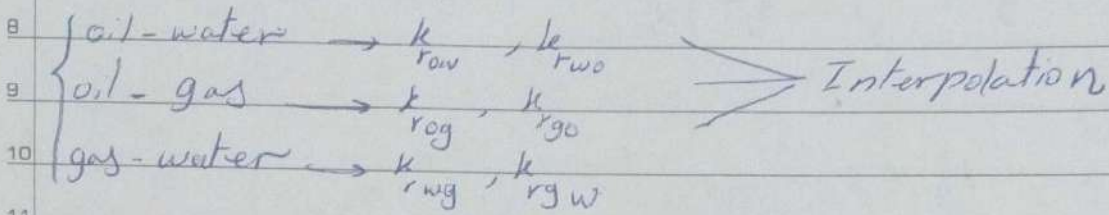 8 oil-water → k_row , k_rwo
9 oil-gas → k_rog , k_rgo Interpolation
10 gas-water → k_rwg , k_rgw
11